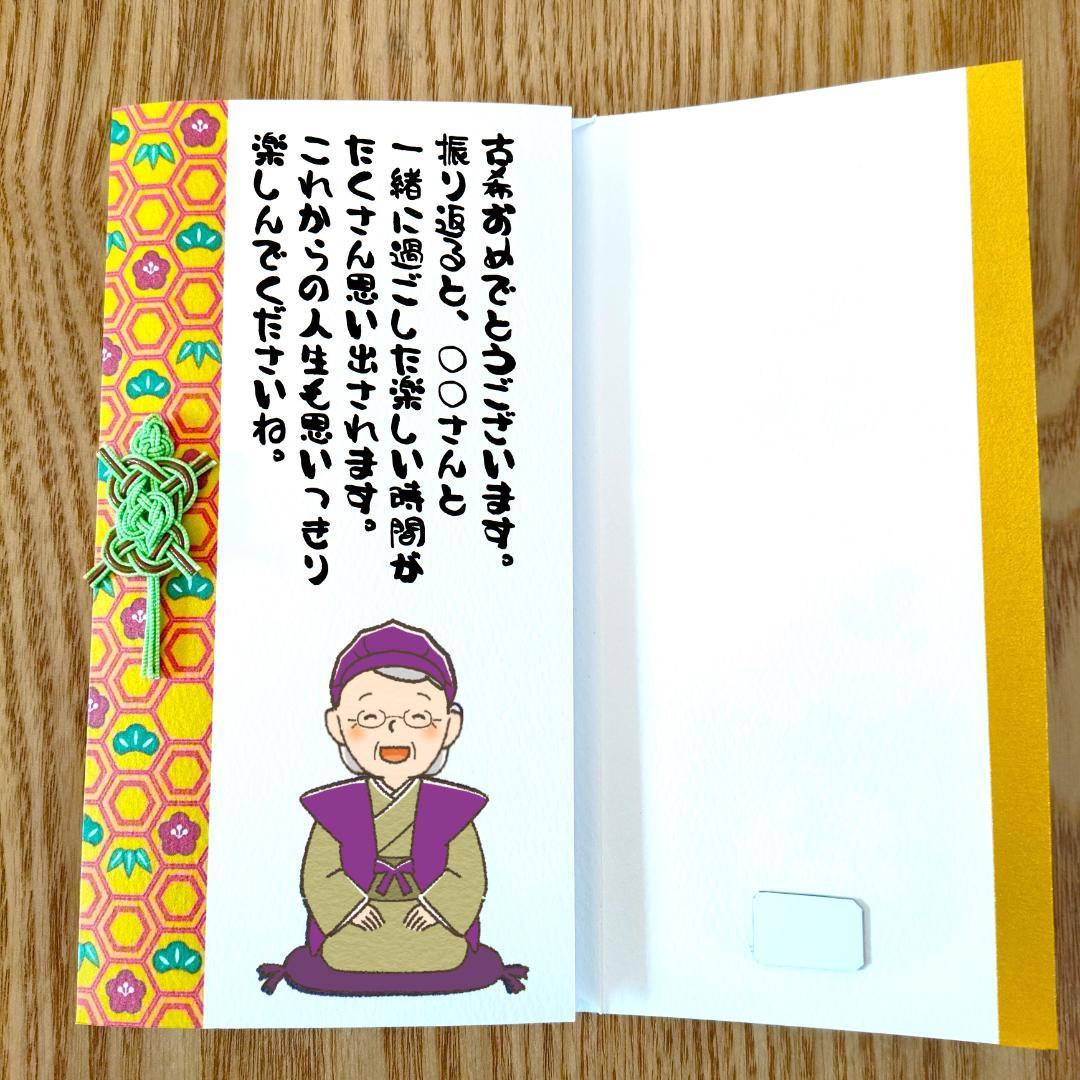 古希おめでとうございます。
振り返ると、○○さんと
一緒に過ごした楽しい時間が
たくさん思い出されます。
これからの人生も思いっきり
楽しんでくださいね。